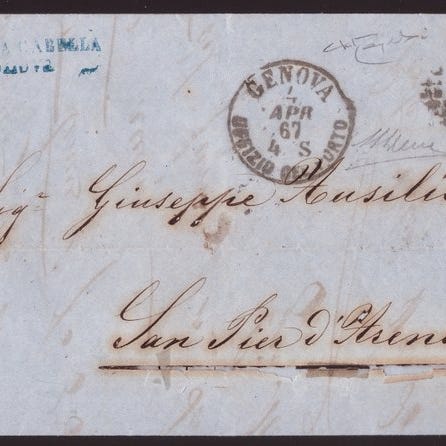 CABELLA
GENOVA
APR
67
4 S
UFFIZIO DEL PORTO
Sig.r Giuseppe Ausilio
San Pier d'Arena